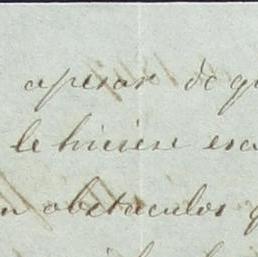 apesar de qu
le hiciese esa
n obstaculos q